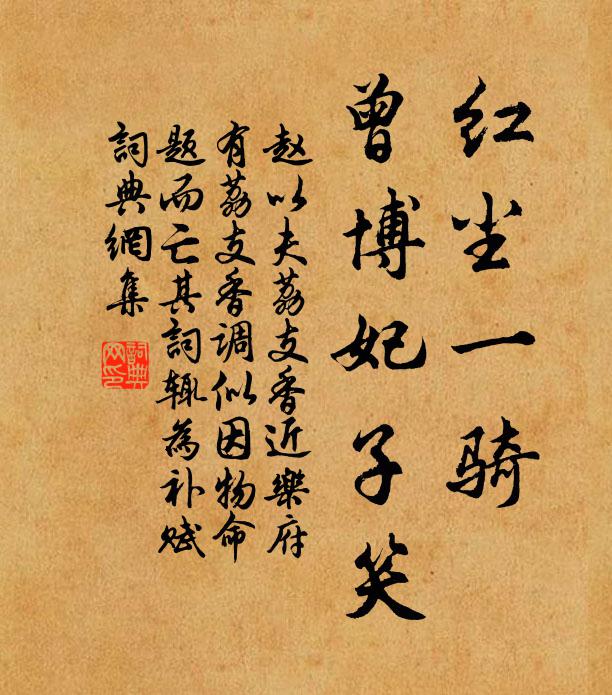 红尘一骑
曾博妃子笑
赵以夫荔支香近樂府
有荔支香调似因物命
题而亡其詞辄為补赋
詞典網集
詞典网印